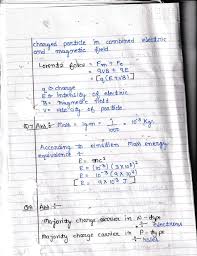 charged particle in combined electric
and magnetic field
Lorentz force = Fm + Fe
= qvB + qE
= [q(E+vB)]
q = charge
E = Intensity of electric
B = magnetic field
V = velocity of particle
Ans:- Mass = 1gm = 1/1000 = 10⁻³ Kg.
According to einstien Mass energy
equivalent :-
E = mc²
E = (10⁻³) (3×10⁸)²
E = 10⁻³ (9×10¹⁶)
E = 9×10¹³ J
Ans:-
Majority charge carrier in n-type
= electrons
Majority charge carrier in P-type
= holes